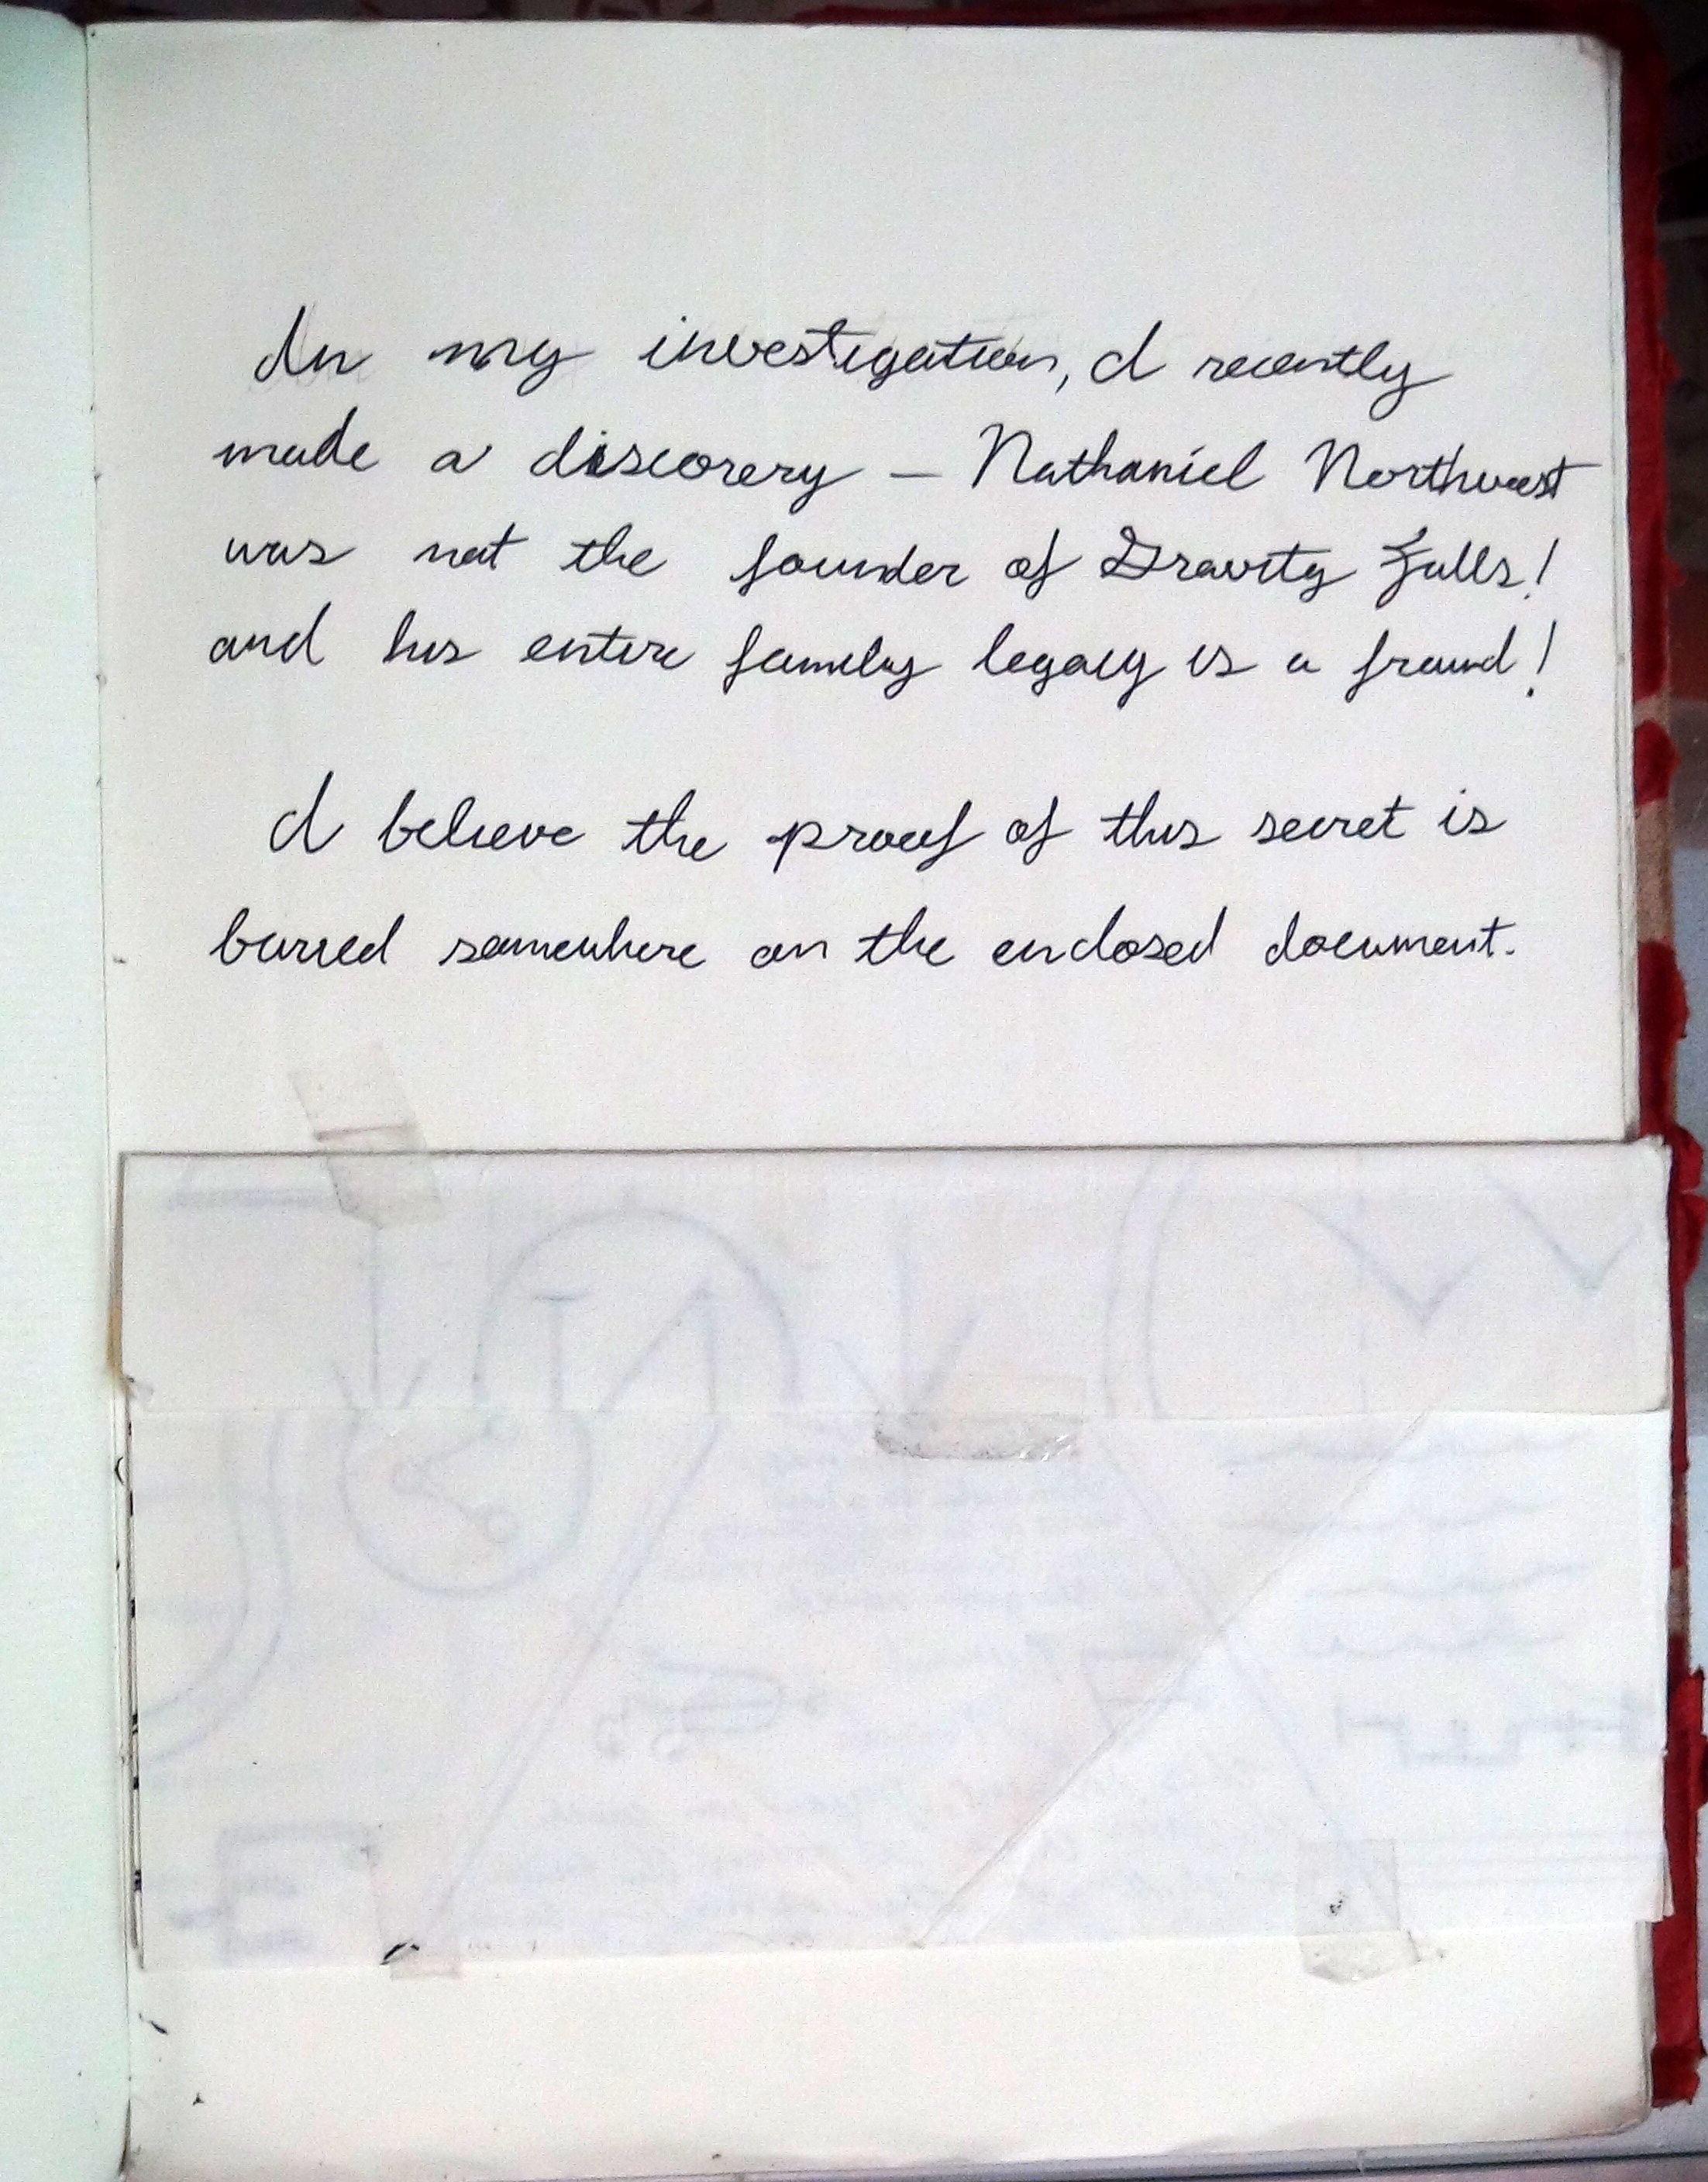 In my investigation, I recently
made a discovery – Nathaniel Northwest
was not the founder of Gravity Falls!
and his entire family legacy is a fraud!
I believe the proof of this secret is
buried somewhere on the enclosed document.